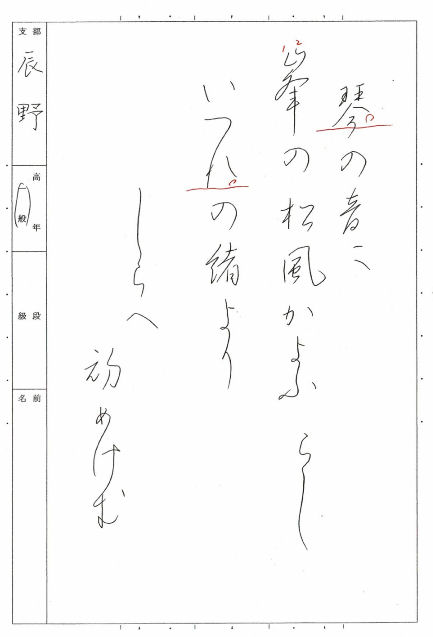 琴の音に
峯の松風かよふ らし
いつれの緒より
しらへ
初めけむ
支部
辰野
高年
一般
段級
名前